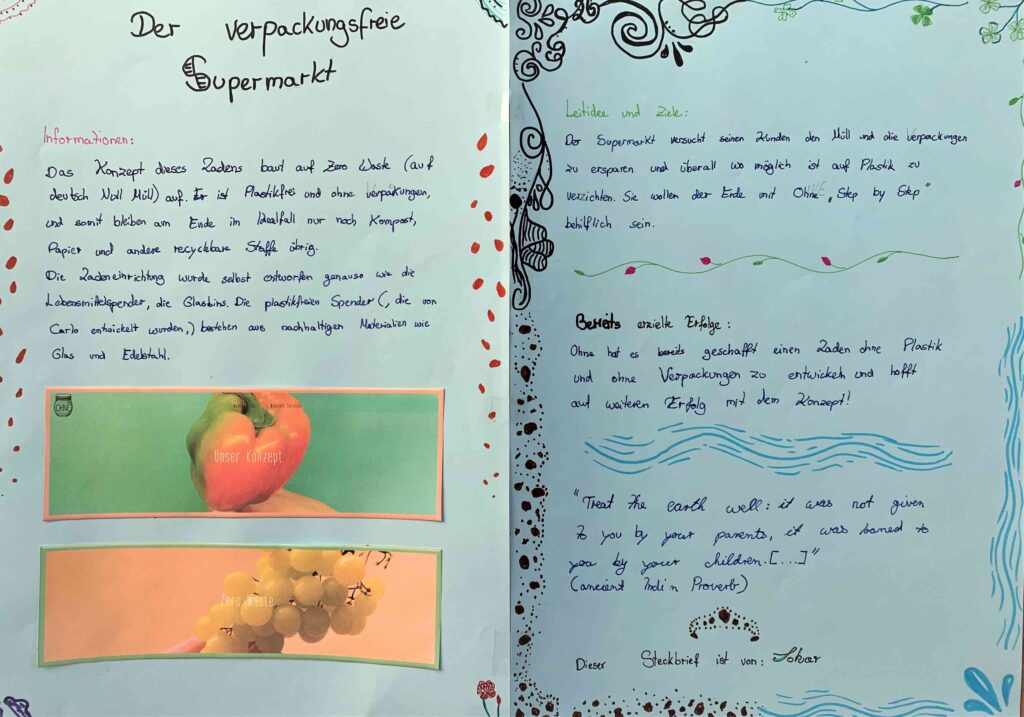 Der verpackungsfreie
Supermarkt
Informationen:
Das Konzept dieses Ladens baut auf Zero Waste (auf
deutsch Null Müll) auf. Er ist Plastikfrei und ohne verpackungen,
und somit bleiben am Ende im Idealfall nur noch Kompost,
Papier und andere recyclebare Stoffe übrig.
Die Ladeneinrichtung wurde selbst entworfen genauso wie die
Lebensmittelspender, die Glasbins. Die plastikfreien Spender (, die von
Carlo entwickelt wurden,) bestehen aus nachhaltigen Materialien wie
Glas und Edelstahl.
OHNE
Unser Konzept
Zero Waste
Leitidee und Ziele:
Der Supermarkt versucht seinen Kunden den Müll und die verpackungen
zu ersparen und überall wo möglich ist auf Plastik zu
verzichten. Sie wollen der Erde mit Ohne „Step by Step"
behilflich sein.
Bereits erzielte Erfolge:
Ohne hat es bereits geschafft einen Laden ohne Plastik
und ohne Verpackungen zu entwickeln und hofft
auf weiteren Erfolg mit dem Konzept!
"Treat the earth well: it was not given
to you by your parents, it was loaned to
you by your children.[...]"
(ancient Proverb)
Dieser Steckbrief ist von: